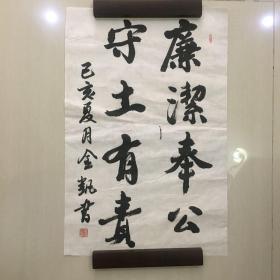 廉潔奉公
守土有責
己亥夏月金凱書